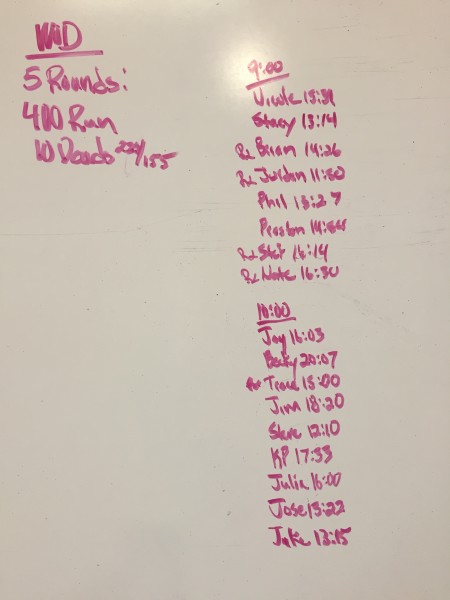 WOD
5 Rounds:
400 Run
10 Deads 225/155
9:00
Nicole 13:31
Stacy 13:14
Rx Brian 14:26
Rx Jordan 11:50
Phil 13:27
Preston 14:54
Rx 16:14
Rx Nate 16:30
10:00
Jay 16:03
Becky 20:07
Rx 15:00
Jim 18:20
Steve 12:10
KP 17:33
Julia 16:00
Jose 13:22
Jake 13:15